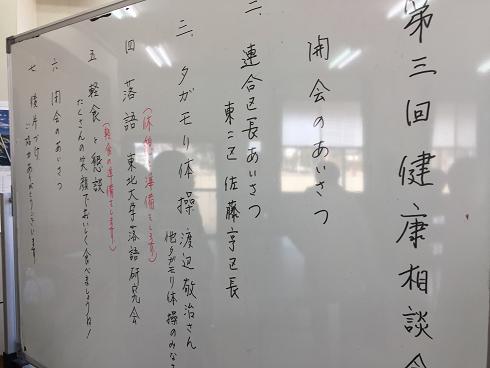 第三回健康相談会
開会のあいさつ
二、連合区長あいさつ
東三区 佐藤 区長
三、タガモリ体操 渡辺敬治さん
他タガモリ体操のみなさ
(休憩 準備をします)
四 落語 東北大学落語研究会
(軽食の準備をします)
五 軽食と懇談
たくさんの笑顔でおいしく食べましょうね!
六 閉会のあいさつ
七 後片づけ
ありがとうございます